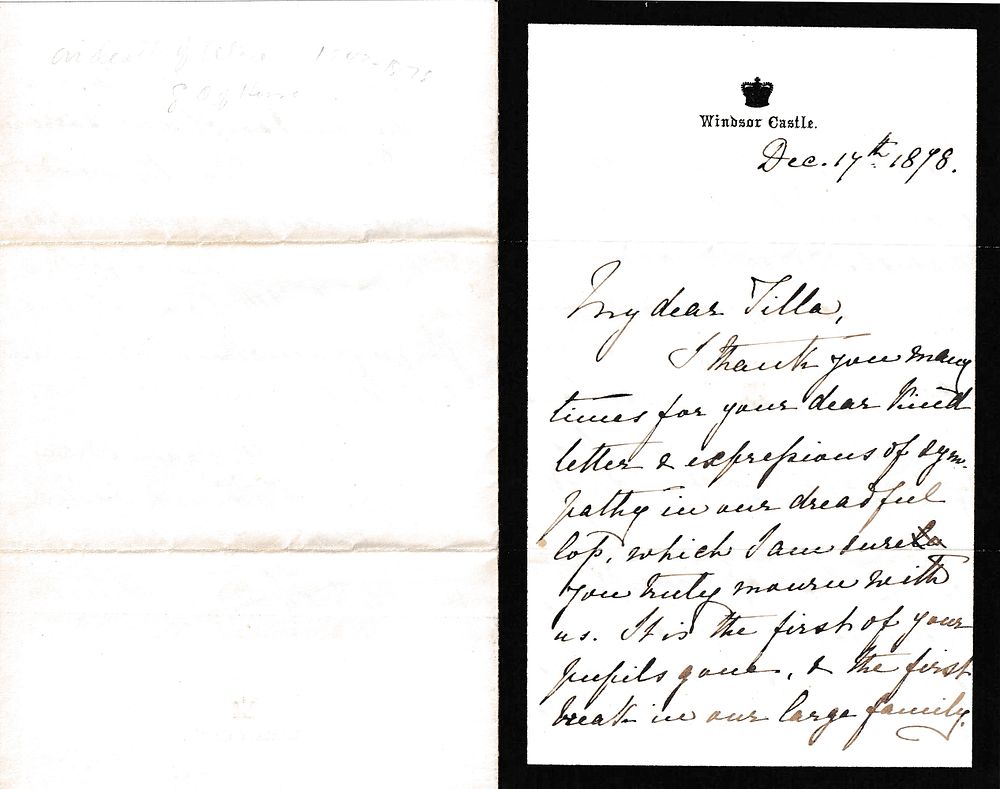 on death of
1878
Windsor Castle.
Dec. 17th 1878.
My dear Tilla,
I thank you many
times for your dear kind
letter & expressions of sym-
pathy in our dreadful
loss, which I am sure
you truly mourn with
us. It is the first of your
pupils gone, & the first
break in our large family.